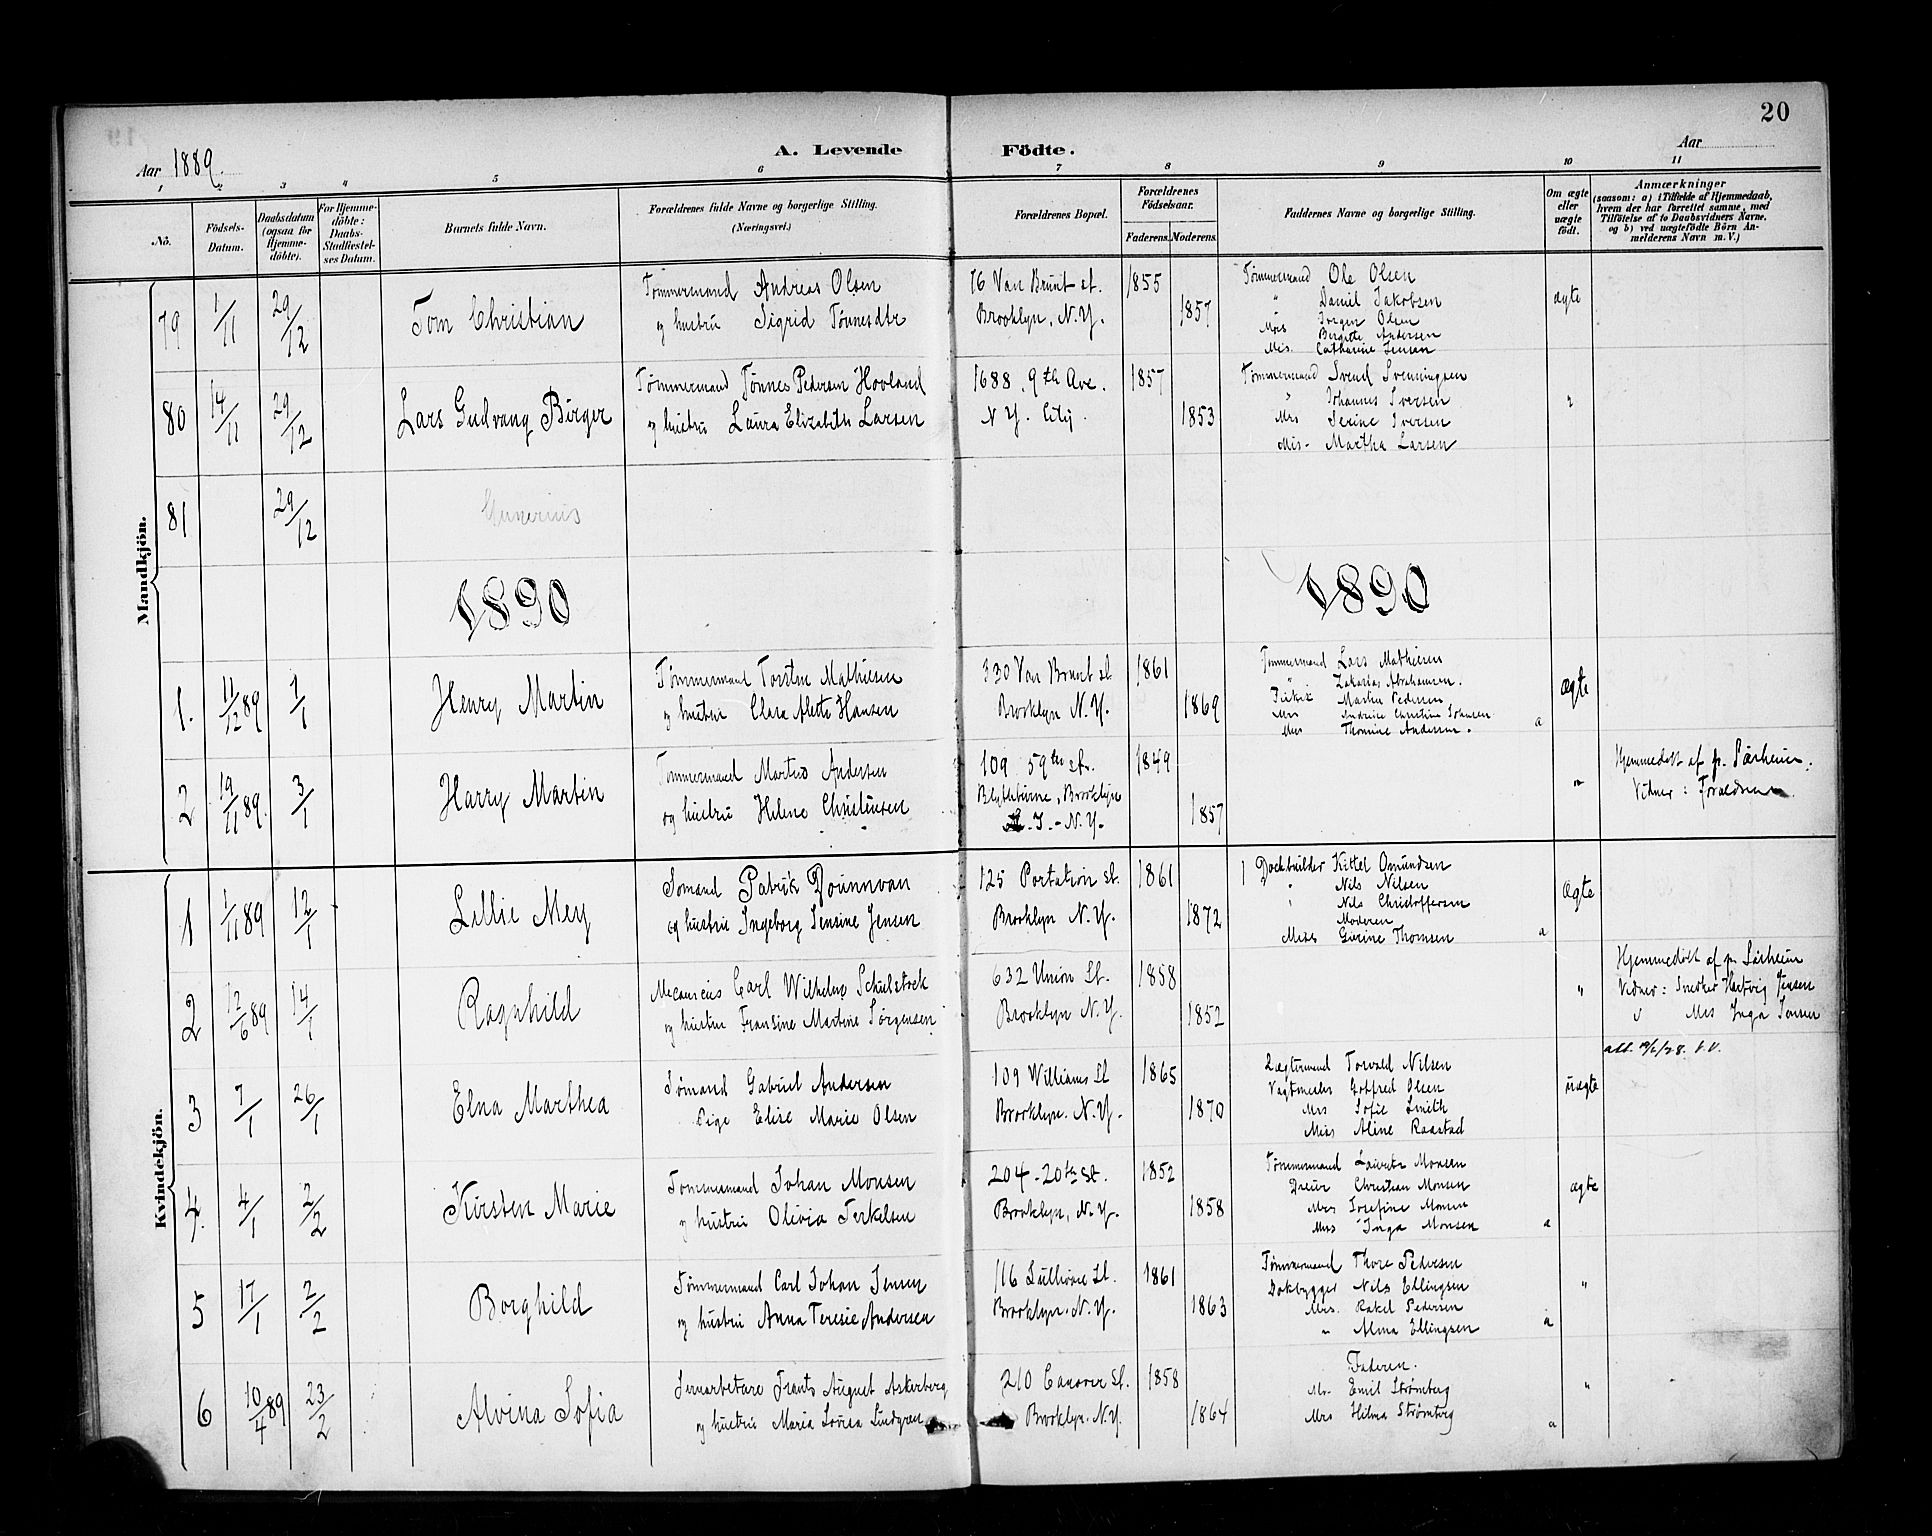 20
Aar 1889.
A. Levende Födte.
Aar
1 2 3 4 5 6 7 8 9 10 11
No.
Födsels-Datum.
Daabsdatum (ogsaa för Hjemme-döbte).
For Hjemme-döbte: Daabs-Stadfæstel-ses Datum.
Barnets fulde Navn.
Forældrenes fulde Navne og borgerlige Stilling. (Næringsvei.)
Forældrenes Bopæl.
Forældrenes Födselsaar.
Faderens. Moderens.
Faddernes Navne og borgerlige Stilling.
Om ægte eller uægte födt.
Anmærkninger
(saasom: a) i Tilfælde af Hjemmedaab, hvem der har forrettet samme, med Tilföielse af to Daabsvidners Navne, og b) ved uægtefödte Börn An-melderens Navn m. V.)
Mandkjön.
79 1/11 29/12 Tom Christian
Tømmermand Andreas Olsen
og hustru Sigrid Tønnesdtr
76 Van Brunt st.
Brooklyn, N.Y.
1855 1857
Tømmermand Ole Olsen
" Daniel Jakobsen
" Jørgen Olsen
Mrs Birgitte Andersen
Mis. Catharine Jensen
ægte
80 14/11 29/12 Lars Gudvang Birger
Tømmermand Tønnes Pedersen Hovland
og hustru Laura Elizabeth Larsen
1688, 9th Ave.
N.Y. City
1857 1853
Tømmermand Svend Svenningsen
" Johannes Iversen
Mrs Serine Iversen
Mis. Martha Larsen
"
81 29/12 Gunerius
1890 1890
1. 11/12 89 1/1 Henry Martin
Tømmermand Torstine Mathiesen
og hustru Clara Alette Hansen
330 Van Brunt st
Brooklyn N.Y.
1861 1869
Tømmermand Lars Mathiesen
" Zakarias Abrahamsen.
Martin Pedersen
Mrs Andrine Christine Johnsen
Mrs Thomine Andersen. a
Ægte
2 19/11 89. 3/1 Harry Martin
Tømmermand Martin Andersen
og hustru Helene Christensen
109 59th st.
Blythburne, Brooklyn
L.I. - N.Y.
1849 1857
"
Hjemmedøbt af p. Sårheim.
Vidner: Forældrene
Kvindekjön.
1 1/11 89 12/1 Lillie Mey
Sømand Patrik Dounnvan
og hustru Ingeborg Jensine Jensen
125 Portation st.
Brooklyn N.Y.
1861 1872
Dockbuilder Kittel Omundsen
" Nils Nilsen
" Nils Christoffersen
Moderen
Miss Gurine Thomsen a
Ægte
2 12/6 89 14/1 Ragnhild
Mecanicus Carl Wilhelm Schulstock
og hustru Fransine Martine Jørgensen
632 Union St.
Brooklyn N.Y.
1858 1852
"
Hjemmedøbt af p. Sårheim
Vidner: Snedker Hartvig Jensen
" Mrs Inga Jensen
3 7/1 26/1 Elna Marthea
Sømand Gabriel Andersen
Pige Elise Marie Olsen
109 Williams St
Brooklyn. N.Y.
1865 1870
Torvald Nilsen
Gotfred Olsen
Mrs Sofie Smith
Miss Aline Raastad
uægte
4. 4/1 2/2 Kirsten Marie
Tømmermand Johan Monsen
og hustru Olivia Terkelsen
204 - 20th St.
Brooklyn, N.Y.
1852 1858
Tømmermand Laurits Monsen
Christian Monsen
Mrs Josefine Monsen
Mrs Inga Monsen a
ægte
5 17/1 2/2 Borghild
Tømmermand Carl Johan Jensen
og hustru Anna Teresie Andersen
116 Sullivan St.
Brooklyn. N.Y.
1861 1863
Tømmermand Thore Pedersen
Dokbygger Nils Ellingsen
Mrs. Rakel Pedersen
" Alma Ellingsen a
"
6 10/4 89 23/2 Alvina Sofia
Jernarbetare Frants August Askerberg
og hustru Maria Lovisa Lindgren
210 Conover St.
Brooklyn. N.Y.
1858 1864
Faderen.
Mr. Emil Strømberg
Mrs Hilma Strømberg a
"